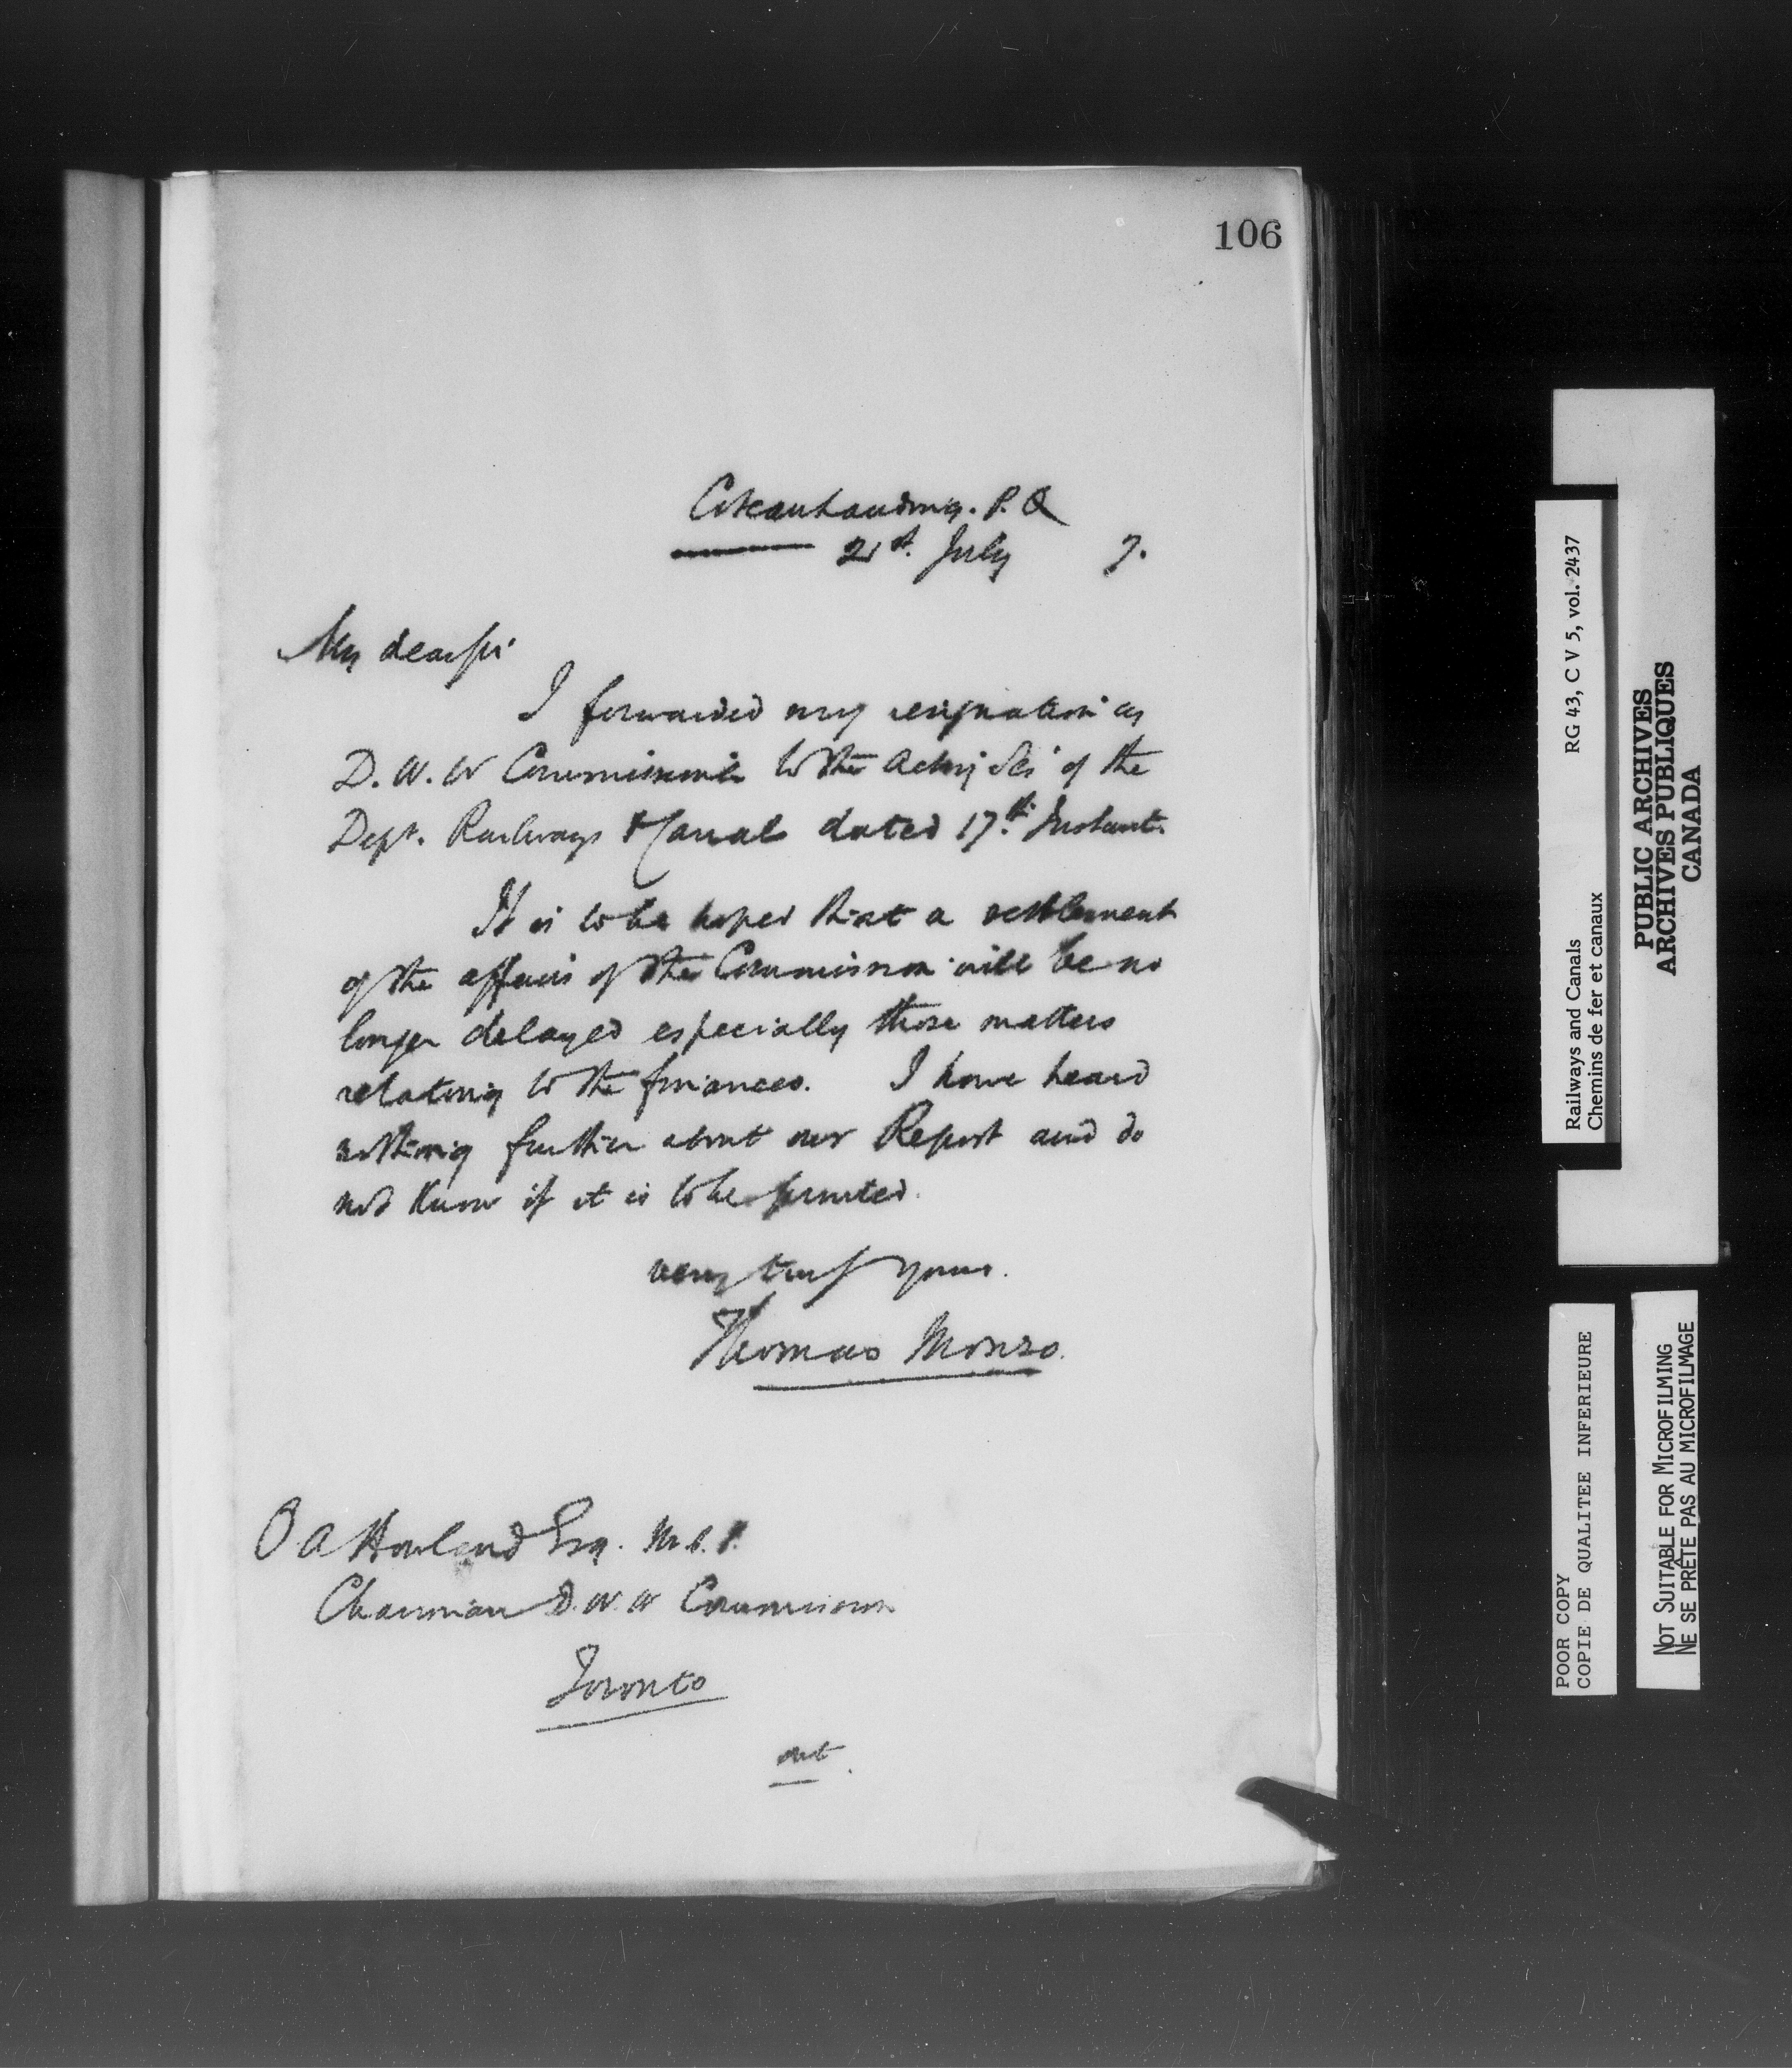 106
Coteau Landing. P.Q
21st. July 7.
My dear Sir
I forwarded my resignation as
D.W.W Commissioner to the Acting Sec of the
Dept. Railways & Canals dated 17th. Instant.
It is to be hoped that a settlement
of the affairs of the Commission will be no
longer delayed especially those matters
relating to the finances. I have heard
nothing further about our Report and do
not know if it is to be printed.
very truly yours.
Thomas Monro.
O A Howland Esq. M.P.P.
Chairman D.W.W Commission
Toronto
RG 43, C V 5, vol. 2437
Railways and Canals
Chemins de fer et canaux
PUBLIC ARCHIVES
ARCHIVES PUBLIQUES
CANADA
POOR COPY
COPIE DE QUALITEE INFERIEURE
NOT SUITABLE FOR MICROFILMING
NE SE PRÊTE PAS AU MICROFILMAGE